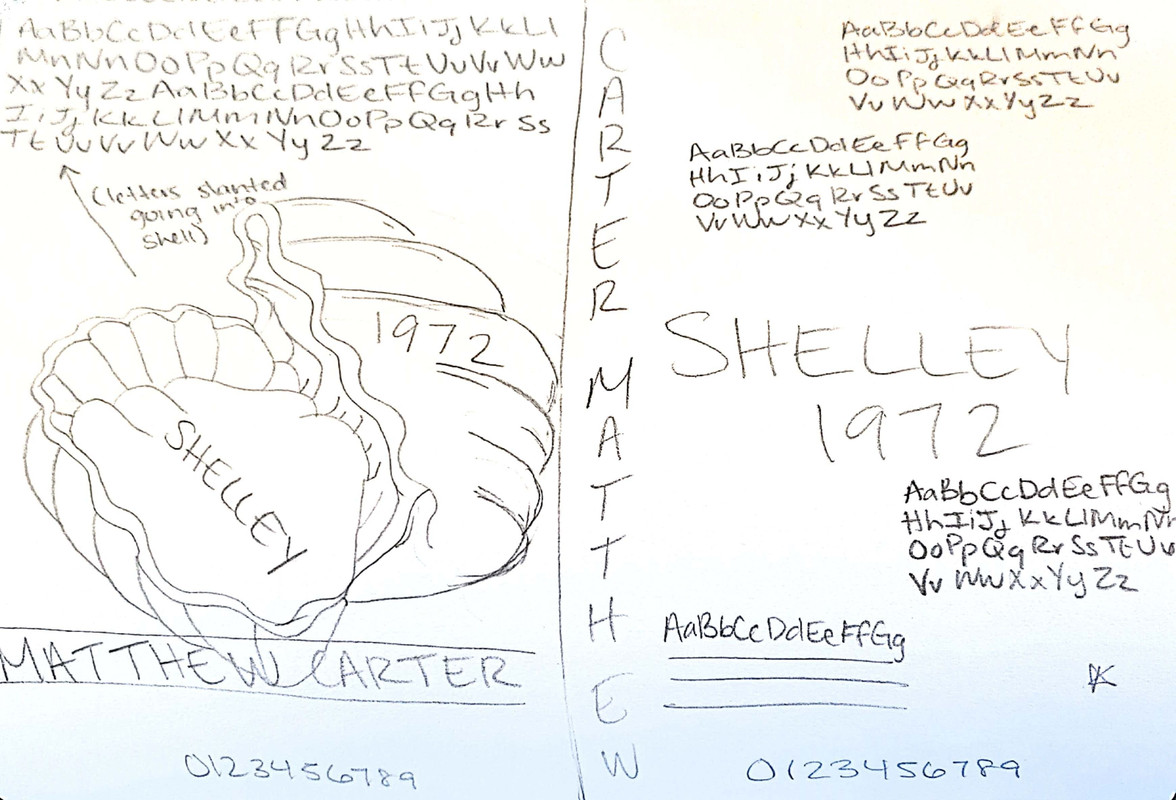 AaBbCcDdEeFfGgHhIiJjKkLl
MmNnOoPpQqRrSsTtUuVvWw
XxYyZzAaBbCcDdEeFfGgHh
IiJjKkLlMmNnOoPpQqRrSs
TtUuVvWwXxYyZz
(letters slanted
going into
shell)
1972
SHELLEY
MATTHEW CARTER
0123456789
CARTER MATTHEW
AaBbCcDdEeFfGg
HhIiJjKkLlMmNn
OoPpQqRrSsTtUu
VvWwXxYyZz
AaBbCcDdEeFfGg
HhIiJjKkLlMmNn
OoPpQqRrSsTtUu
VvWwXxYyZz
SHELLEY
1972
AaBbCcDdEeFfGg
HhIiJjKkLlMmNn
OoPpQqRrSsTtUu
VvWwXxYyZz
AaBbCcDdEeFfGg
0123456789